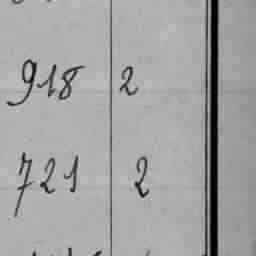 918 2
721 2